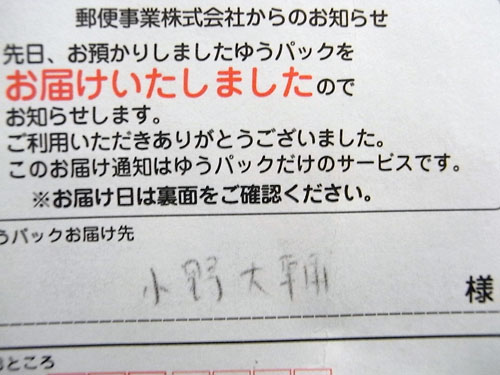 郵便事業株式会社からのお知らせ
先日、お預かりしましたゆうパックを
お届けいたしましたので
お知らせします。
ご利用いただきありがとうございました。
このお届け通知はゆうパックだけのサービスです。
※お届け日は裏面をご確認ください。
うパックお届け先
小野大輔 様
おところ